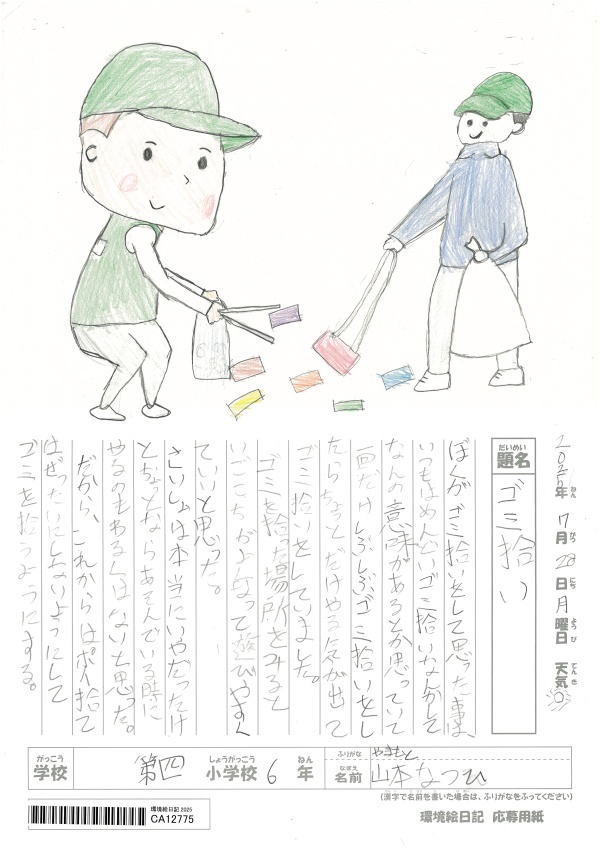 2025年 7月 28日 月曜日 天気
ねん がつ にち ようび てんき
だいめい
題名
ゴミ拾い
ぼくがゴミ拾いをして思った事は、
いつもはめんどいゴミ拾いなんかして
なんの意味があるとか思っていて
一回だけしぶしぶゴミ拾いをし
たらちょっとだけやる気が出て
ゴミ拾いをしていました。
ゴミを拾った場所をみると
いごこちがよくなって遊びやすく
ていいと思った。
さいしょは本当にいやだったけ
とちょっとならあそんでいる時に
やるのもわるくはないと思った。
だから、これからはポイ捨て
はぜったいにしないようにして
ゴミを拾うようにする。
がっこう
学校
第四
しょうがっこう
小学校
6
ねん
年
ふりがな
やまもと
なまえ
名前
山本なつひ
(漢字で名前を書いた場合は、ふりがなをふってください)
環境絵日記 2025
CA12775
環境絵日記 応募用紙